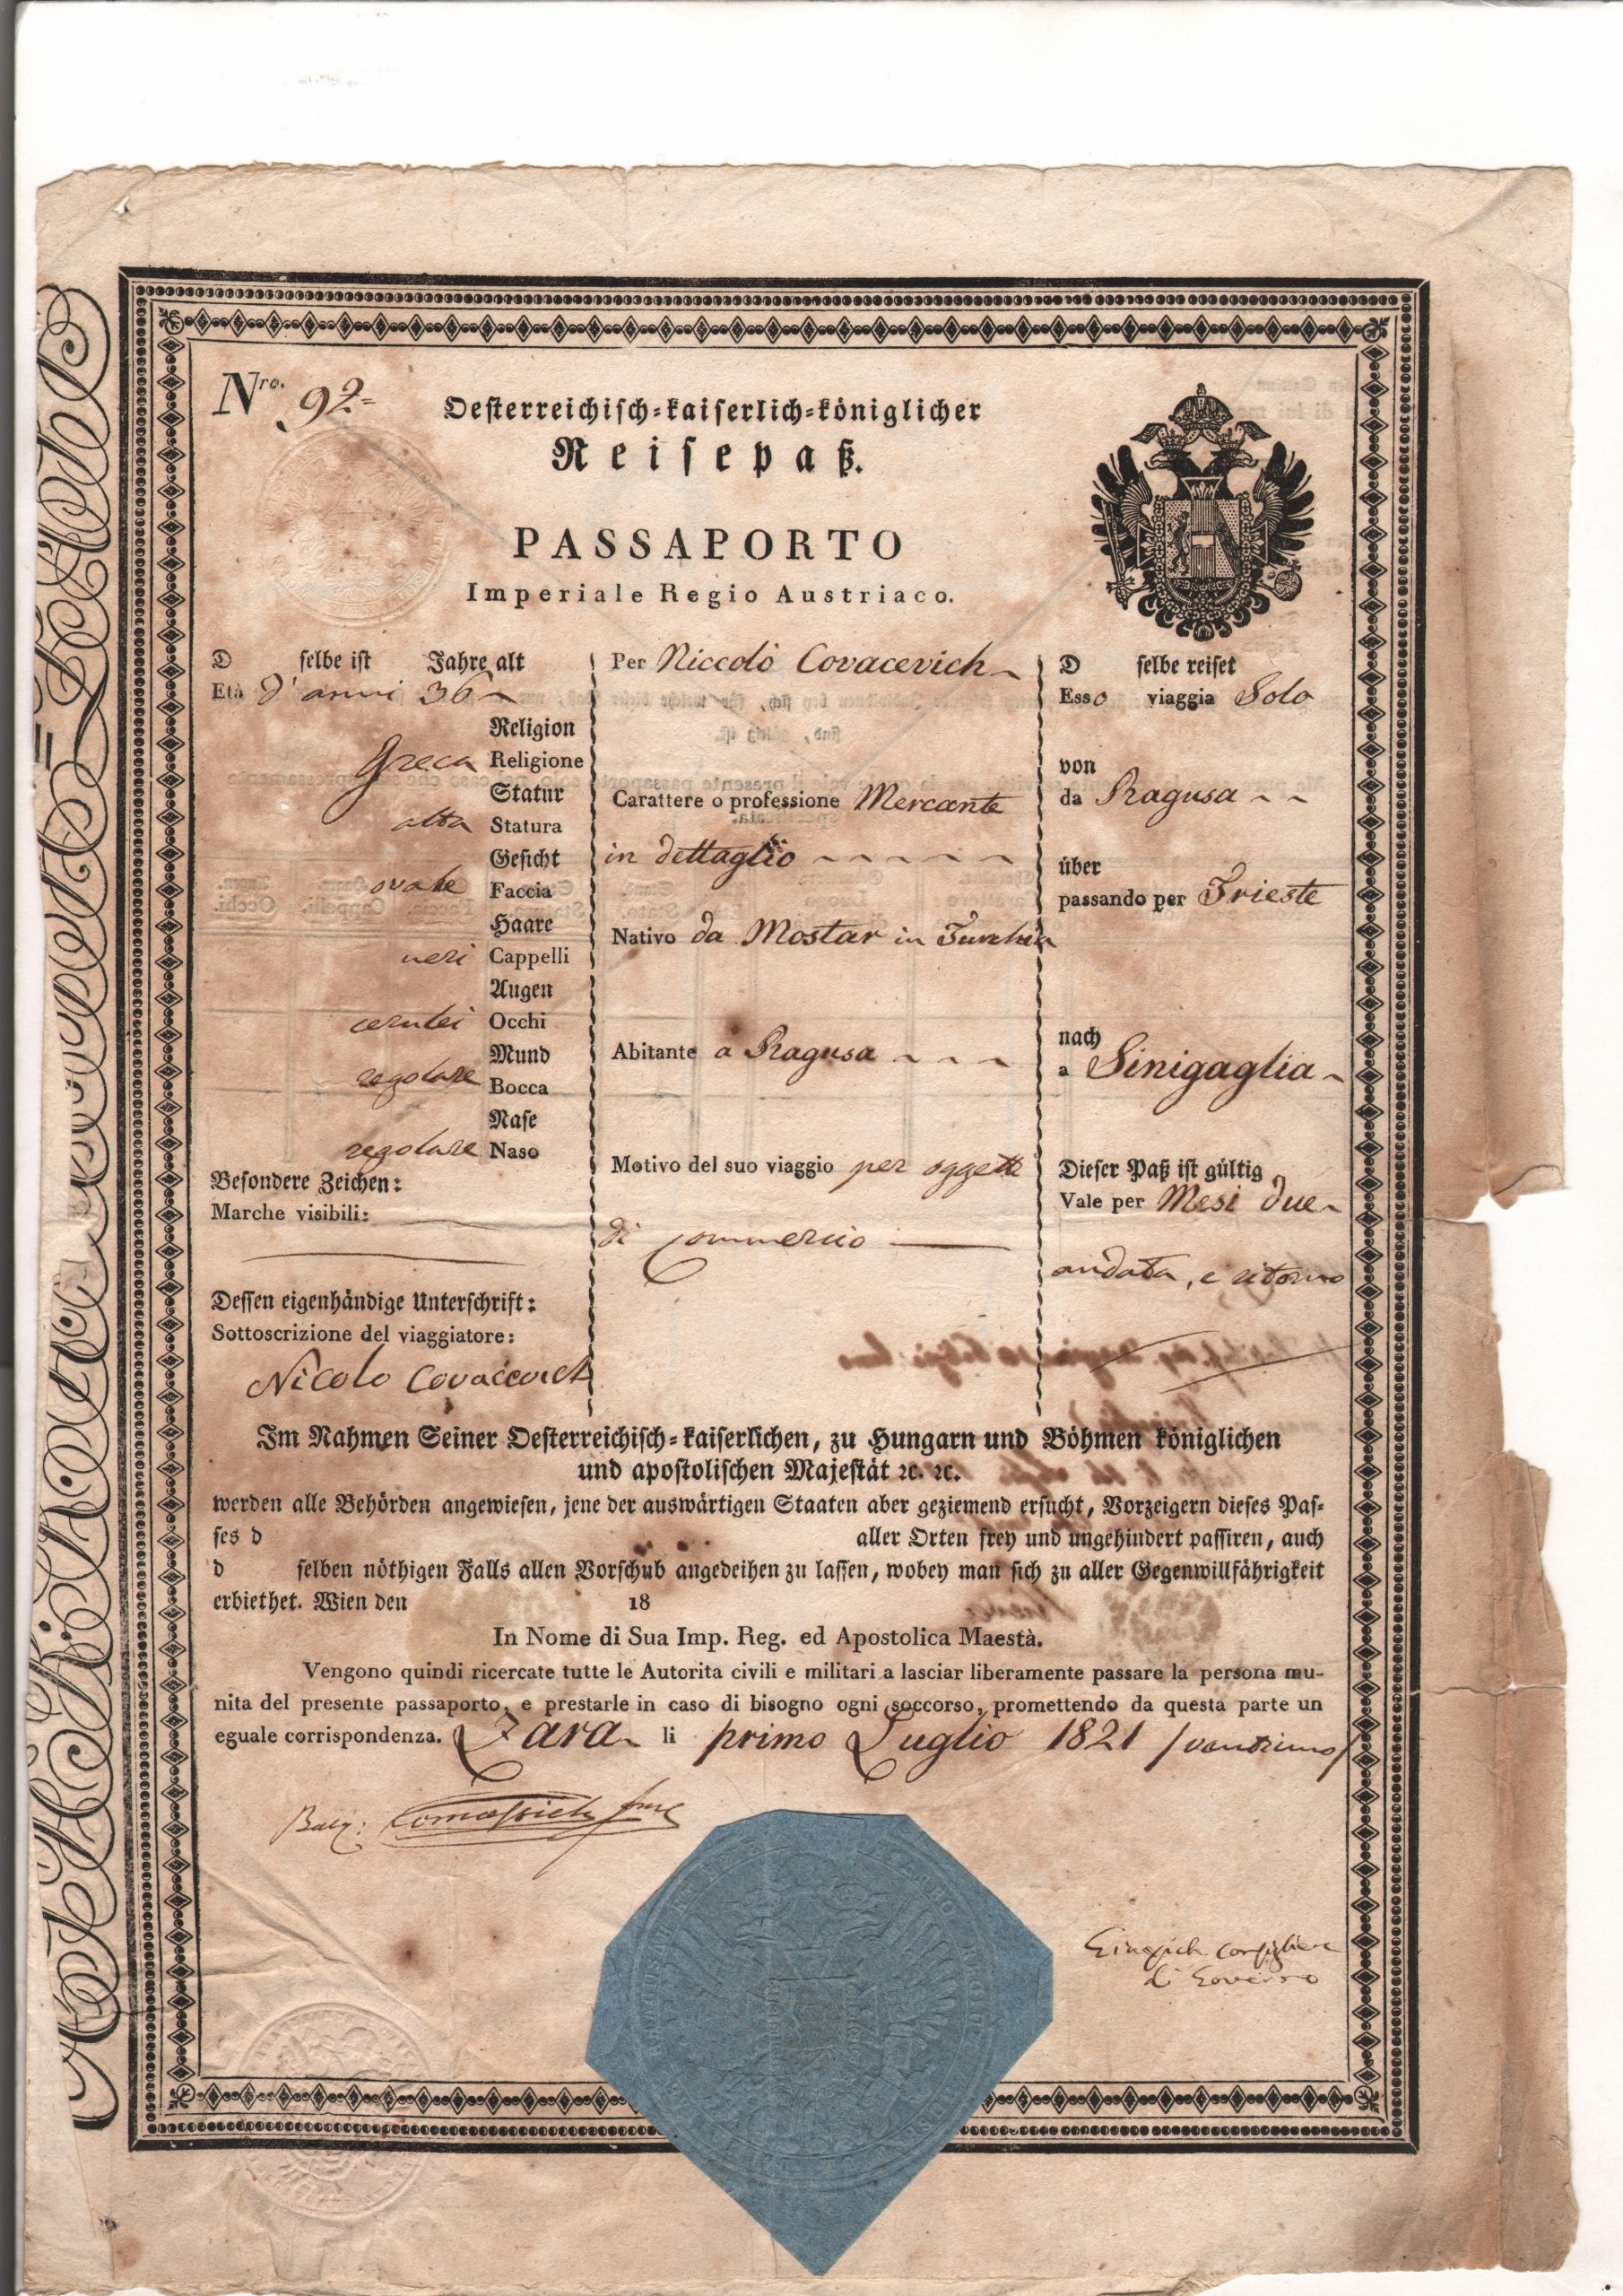 Nro. 92=
Oesterreichisch=kaiserlich=königlicher
Reisepaß.
PASSAPORTO
Imperiale Regio Austriaco.
D selbe ist Jahre alt
Età d'anni 36
Religion
greca Religione
Statur
alta Statura
Gesicht
ovale Faccia
Haare
neri Cappelli
Augen
cerulei Occhi
Mund
regolare Bocca
Nase
regolare Naso
Besondere Zeichen:
Marche visibili:
Dessen eigenhändige Unterschrift:
Sottoscrizione del viaggiatore:
Nicolo Covacevich
Per Niccolò Covacevich
Carattere o professione Mercante
in dettaglio
Nativo da Mostar in Turchia
Abitante a Ragusa
Motivo del suo viaggio per oggetti
di commercio
D selbe reiset
Esso viaggia Solo
von
da Ragusa
über
passando per Trieste
nach
a Sinigaglia
Dieser Paß ist gültig
Vale per Mesi due
andata, e ritorno
Im Nahmen Seiner Oesterreichisch=kaiserlichen, zu Hungarn und Böhmen königlichen
und apostolischen Majestät ꝛc. ꝛc.
werden alle Behörden angewiesen, jene der auswärtigen Staaten aber geziemend ersucht, Vorzeigern dieses Pas=
ses d aller Orten frey und ungehindert passiren, auch
d selben nöthigen Falls allen Vorschub angedeihen zu lassen, wobey man sich zu aller Gegenwillfährigkeit
erbiethet. Wien den 18
In Nome di Sua Imp. Reg. ed Apostolica Maestà.
Vengono quindi ricercate tutte le Autorita civili e militari a lasciar liberamente passare la persona mu-
nita del presente passaporto, e prestarle in caso di bisogno ogni soccorso, promettendo da questa parte un
eguale corrispondenza. Zara li primo Luglio 1821
Tomassich
consigliere
di Governo